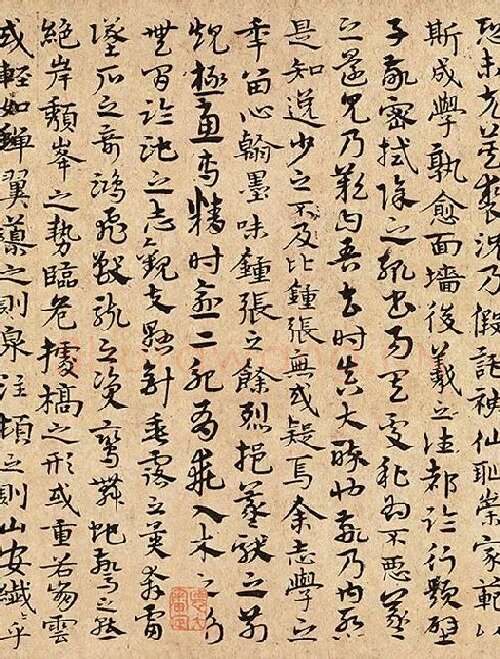 恐未克箕裘況乃假託神仙恥崇家範以
斯成學孰愈面墻後羲之往都臨行題壁
子敬密拭除之輒書易其處私為不惡羲
之還見乃歎曰吾去時真大醉也敬乃內慙
是知逸少之不及比鍾張無或疑焉余志學之
年留心翰墨味鍾張之餘烈挹羲獻之前
規極慮專精時逾二紀有乖入木之術
無間臨池之志觀夫懸針垂露之異奔雷
墜石之奇鴻飛獸駭之資鸞舞蛇驚之態
絕岸頹峯之勢臨危據槁之形或重若崩雲
或輕如蟬翼導之則泉注頓之則山安纖〻乎